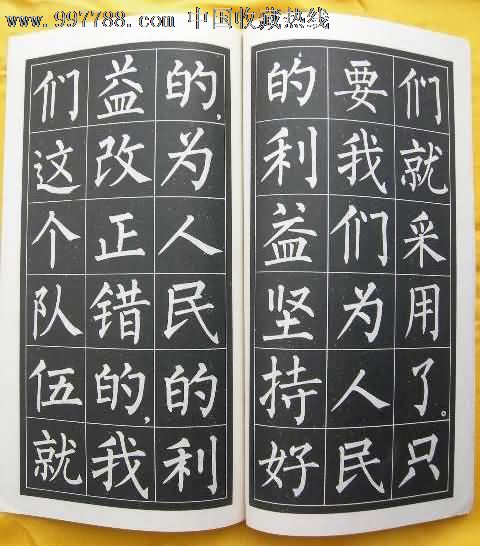 www.997788.com 中国收藏热线
们就采用了。只
要我们为人民
的利益坚持好
的,为人民的利
益改正错的,我
们这个队伍就